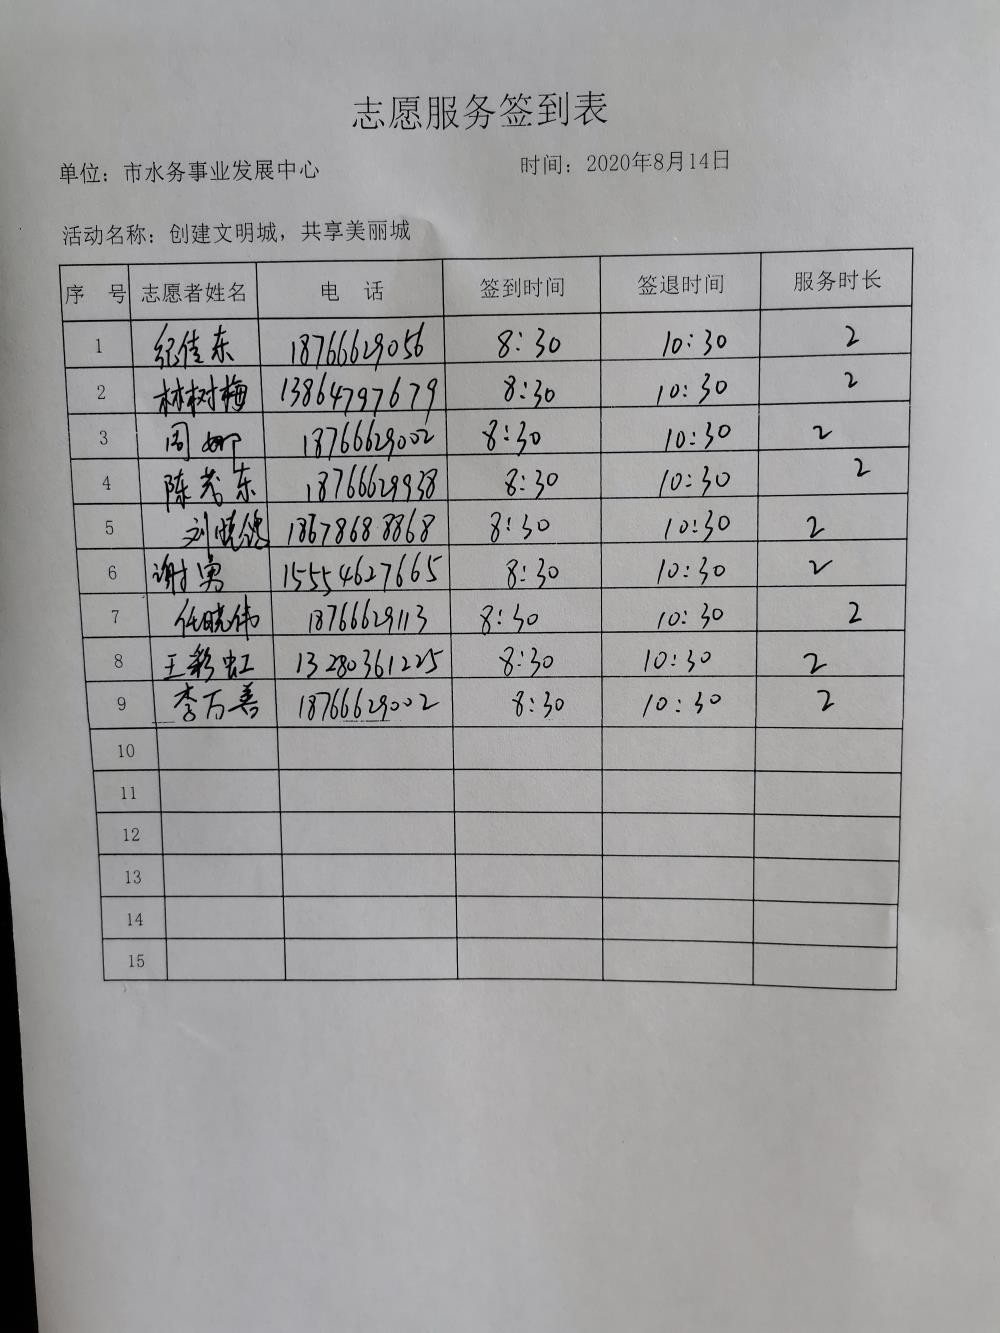 志愿服务签到表
单位：市水务事业发展中心 时间：2020年8月14日
活动名称：创建文明城，共享美丽城
序 号 志愿者姓名 电 话 签到时间 签退时间 服务时长
1 纪佳东 18766629056 8:30 10:30 2
2 林树梅 13864797679 8:30 10:30 2
3 周娜 18766629002 8:30 10:30 2
4 陈茂东 18766629938 8:30 10:30 2
5 刘晓 18678688868 8:30 10:30 2
6 谢勇 15554627665 8:30 10:30 2
7 任晓伟 18766629113 8:30 10:30 2
8 王彩虹 13280361225 8:30 10:30 2
9 李万善 18766629002 8:30 10:30 2
10
11
12
13
14
15